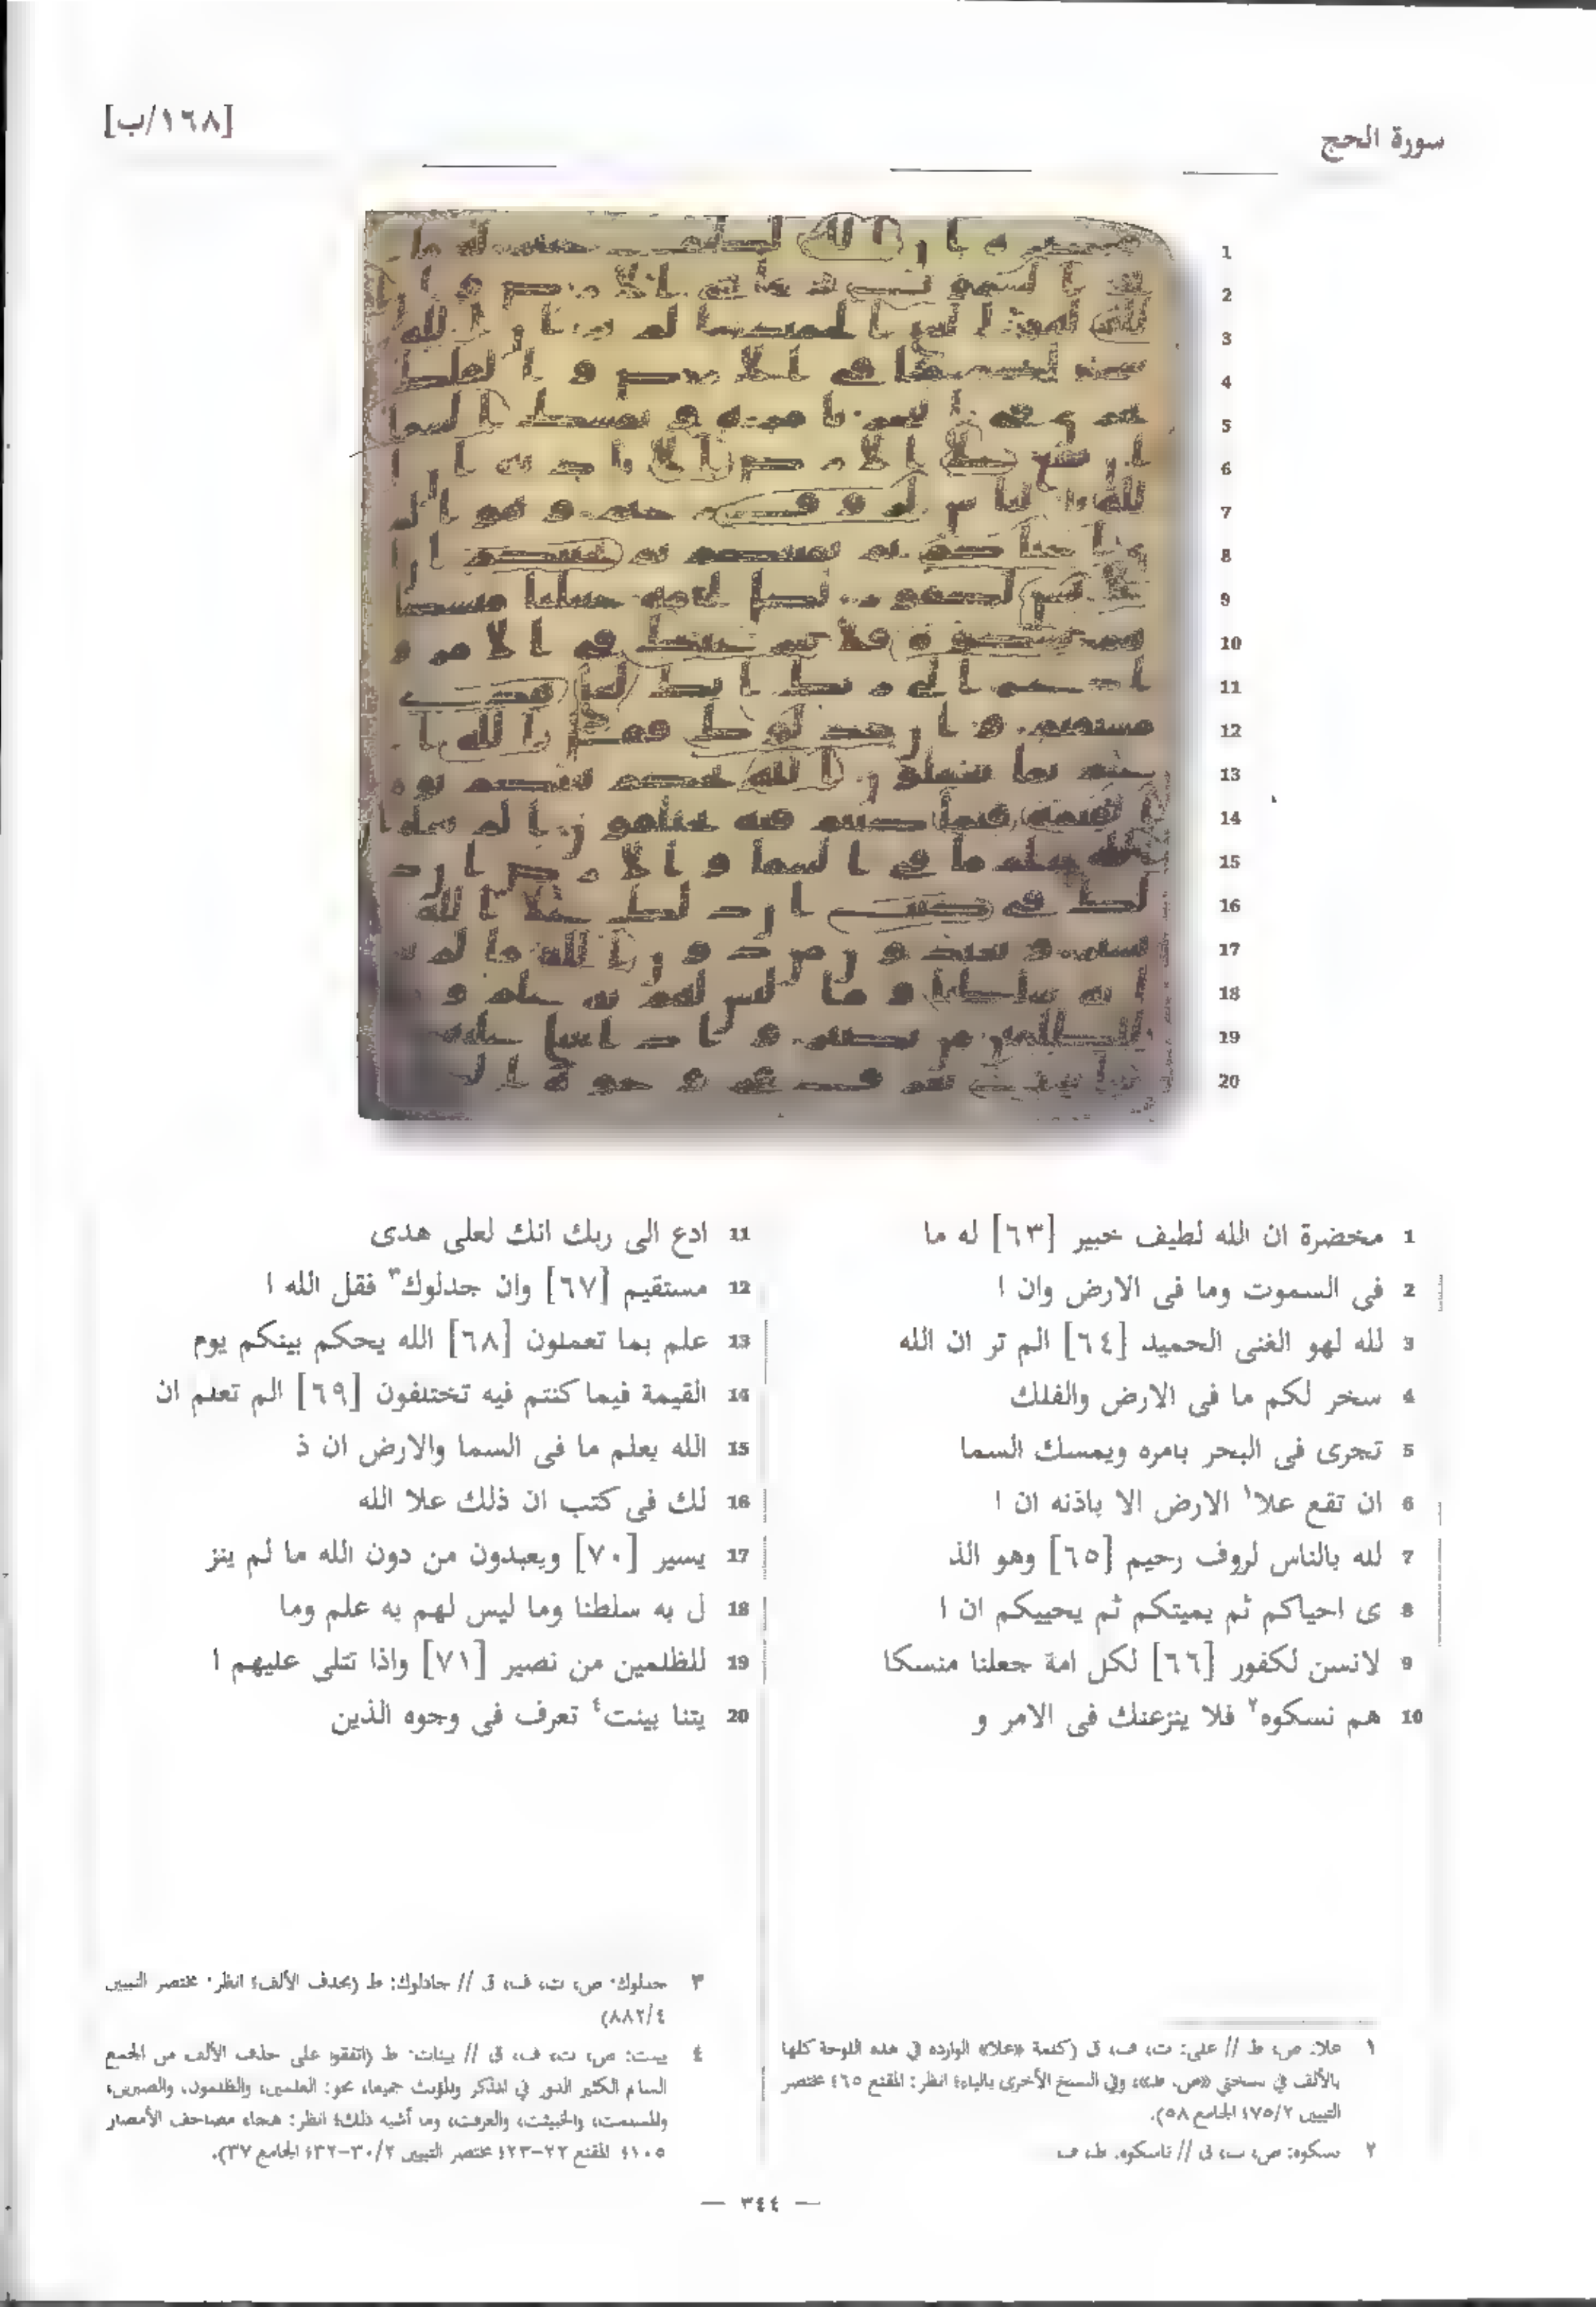 [١٦٨/ب]
سورة الحج
1 مخضرة ان الله لطيف خبير [٦٣] له ما
2 فى السموت وما فى الارض وان ا
3 لله لهو الغنى الحميد [٦٤] الم تر ان الله
4 سخر لكم ما فى الارض والفلك
5 تجرى فى البحر بامره ويمسك السما
6 ان تقع علا١ الارض الا باذنه ان ا
7 لله بالناس لروف رحيم [٦٥] وهو الذ
8 ى احياكم ثم يميتكم ثم يحييكم ان ا
9 لانسن لكفور [٦٦] لكل امة جعلنا منسكا
10 هم نسكوه٢ فلا ينزعنك فى الامر و
11 ادع الى ربك انك لعلى هدى
12 مستقيم [٦٧] وان جدلوك٣ فقل الله ا
13 علم بما تعملون [٦٨] الله يحكم بينكم يوم
14 القيمة فيما كنتم فيه تختلفون [٦٩] الم تعلم ان
15 الله يعلم ما فى السما والارض ان ذ
16 لك فى كتب ان ذلك علا الله
17 يسير [٧٠] ويعبدون من دون الله ما لم ينز
18 ل به سلطنا وما ليس لهم به علم وما
19 للظلمين من نصير [٧١] واذا تتلى عليهم ا
20 يتنا بينت٤ تعرف فى وجوه الذين
١ علا: ص، ط // على: ت، ف، ق (كلمة «علا» الوارده في هذه اللوحة كلها
بالألف في نسختي «ص، ط»، وفي النسخ الأخرى بالياء؛ انظر: المقنع ٦٥؛ مختصر
التبيين ٧٥/٢؛ الجامع ٥٨).
٢ نسكوه: ص، ت، ق // ناسكوه: ط، ف
٣ جدلوك: ص، ت، ف، ق // جادلوك: ط (بحذف الألف؛ انظر: مختصر التبيين
٨٨٢/٤)
٤ بينت: ص، ت، ف، ق // بينات: ط (اتفقوا على حذف الألف من الجمع
السالم الكثير الدور في المذكر والمؤنث جميعا، نحو: العلمين، والظلمون، والصبرين،
والمسلمت، والخبيثت، والغرفت، وما أشبه ذلك؛ انظر: هجاء مصاحف الأمصار
١٠٥؛ المقنع ٢٢-٢٣؛ مختصر التبيين ٣٠/٢-٣٢؛ الجامع ٣٧).
— ٣٤٤ —